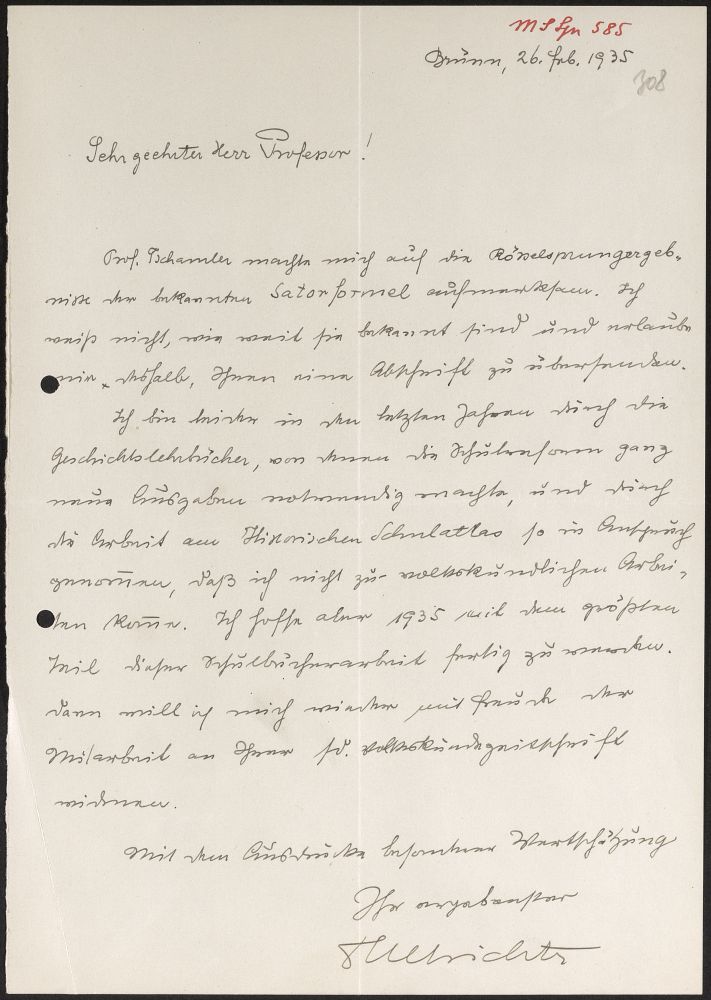 MS Spr 585
Brünn, 26. Feb. 1935
308
Sehr geehrter Herr Professor!
Prof. Tschamler machte mich auf die Rösselsprungergeb-
nisse der bekannten Satorformel aufmerksam. Ich
weiß nicht, wie weit sie bekannt sind und erlaube
mir deshalb, Ihnen eine Abschrift zu übersenden.
Ich bin leider in den letzten Jahren durch die
Geschichtslehrbücher, von denen die Schulreform ganz
neue Ausgaben notwendig machte, und durch
die Arbeit am Historischen Schulatlas so in Anspruch
genommen, daß ich nicht zu volkskundlichen Arbei-
ten komme. Ich hoffe aber 1935 mit dem größten
Teil dieser Schulbücherarbeit fertig zu werden.
Dann will ich mich wieder mit Freude der
Mitarbeit an Ihrer sd. Volkskundezeitschrift
widmen.
Mit dem Ausdrucke besonderer Wertschätzung
Ihr ergebenster